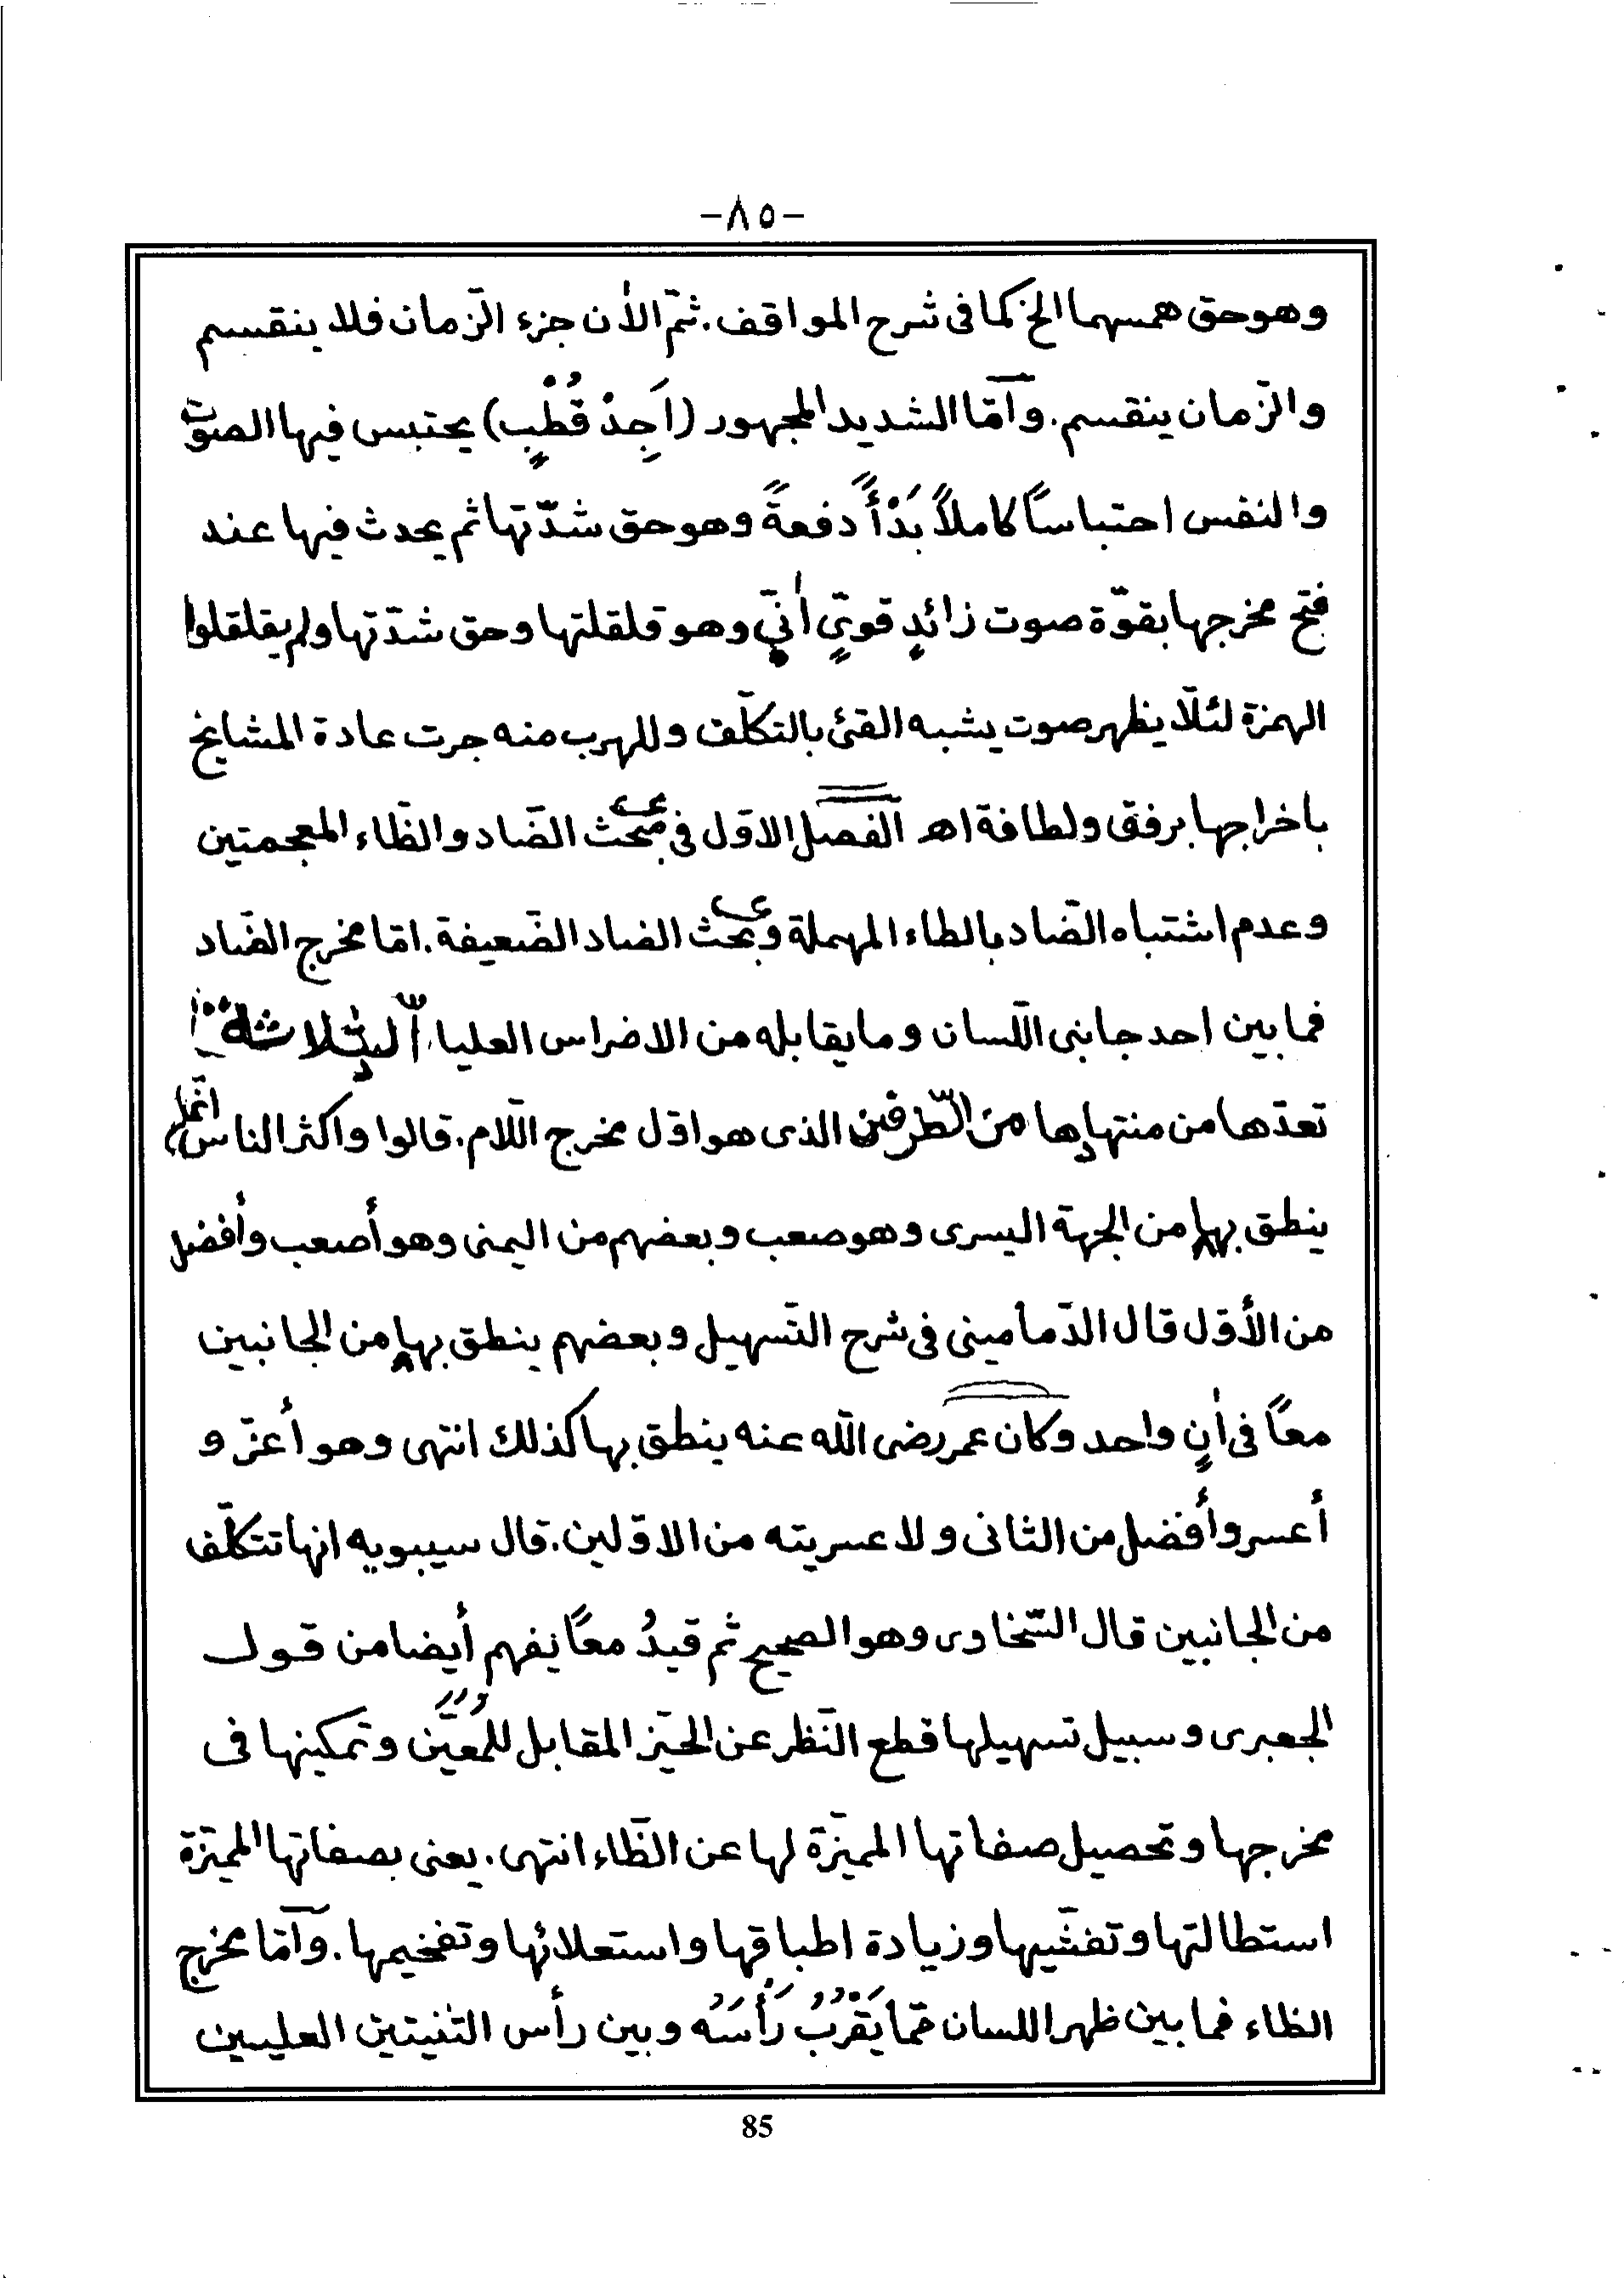 -٨٥-
وهو حق همسهما الخ كما فى شرح المواقف. ثمّ الأٰن جزء الزّمان فلا ينقسم
والزّمان ينقسم. وأمّا الشديد المجهور (اَجِدْ قُطْبٍ) يحتبس فيها الصوت
والنفس احتباسًا كاملاً بَدْأً دفعةً وهو حق شدّتها ثم يحدث فيها عند
فتح مخرجها بقوّة صوت زائدٍ قويٍّ أٰنيٍّ وهو قلقلتها وحق شدّتها ولم يقلقلوا
الهمزة لئلاّ يظهر صوت يشبه القئ بالتكلّف وللهرب منه جرت عادة المشايخ
باخراجها برفق ولطافة اهـ الفصل الاوّل فى مبحث الضّاد والظّاء المعجمتين
وعدم اشتباه الضّاد بالطاء المهملة وبحث الضاد الضّعيفة. امّا مخرج الضّاد
فما بين احد جانبى اللّسان وما يقابله من الاضراس العليا الثلاثة
تعدّها من منتهاها من الطّرفين الذى هو اوّل مخرج اللّام. قالوا واكثر الناس انّما
ينطق بها من الجهة اليسرى وهو صعب وبعضهم من اليمنى وهو أصعب وأفضل
من الأوّل قال الدّمامينى فى شرح التّسهيل وبعضهم ينطق بها من الجانبين
معًا فى اٰنٍ واحد وكان عمر رضى اللّه عنه ينطق بها كذلك انتهى وهو أعزّ و
أعسر وأفضل من الثانى ولا عسريته من الاوّلين. قال سيبويه انها تتكلّف
من الجانبين قال السّخاوى وهو الصحيح ثم قيدُ معًا يفهم أيضا من قول
الجعبرى وسبيل تسهيلها قطع النّظر عن الحيّز المقابل للمُعَيَّن وتمكينها فى
مخرجها وتحصيل صفاتها المميّزة لها عن الظّاء انتهى. يعنى بصفاتها المميّزة
استطالتها وتفشّيها وزيادة اطباقها واستعلائها وتفخيمها. وأمّا مخرج
الظاء فما بين ظهر اللسان ممّا يَقْرُبُ رَأْسَهُ وبين رأس الثنيتين العليين
85